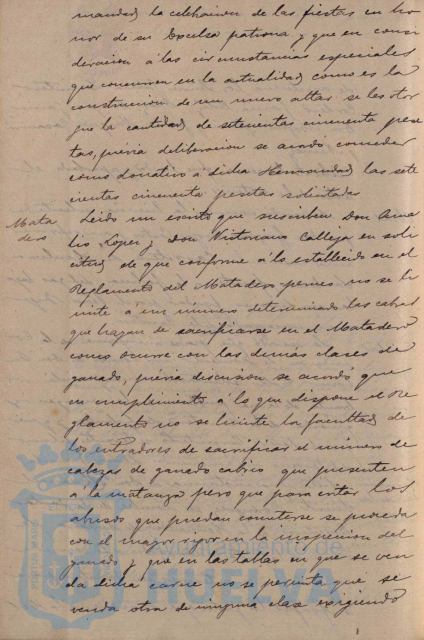 mandad la celebracion de las fiestas en ho
nor de su Excelsa patrona y que en consi
deracion á las circunstancias especiales
que concurren en la actualidad como es la
construccion de un nuevo altar se les otor
gue la cantidad de setecientas cincuenta pese
tas, previa deliberacion se acordo conceder
como donativo á dicha Hermandad las sete
cientas cincuenta pesetas solicitadas
Mata
dero
Leido un escrito que suscriben Don Ama
lio Lopez y Don Victoriano Calleja en soli
citud de que conforme á lo establecido en el
Reglamento del Matadero no se li
mite á un número determinado las cabras
que hayan de sacrificarse en el Matadero
como ocurre con las demás clases de
ganado, previa discusion se acordó que
en cumplimiento á lo que dispone el Re
glamento no se limite la facultad de
los entradores de sacrificar el número de
cabezas de ganado cabrio que presenten
á la matanza pero que para evitar los
abusos que puedan cometerse se proceda
con el mayor rigor en la inspeccion del
ganado y que en las tablas en que se ven
da dicha carne no se permita que se
venda otra de ninguna clase exigiendo
Ayuntamiento de
HUELVA